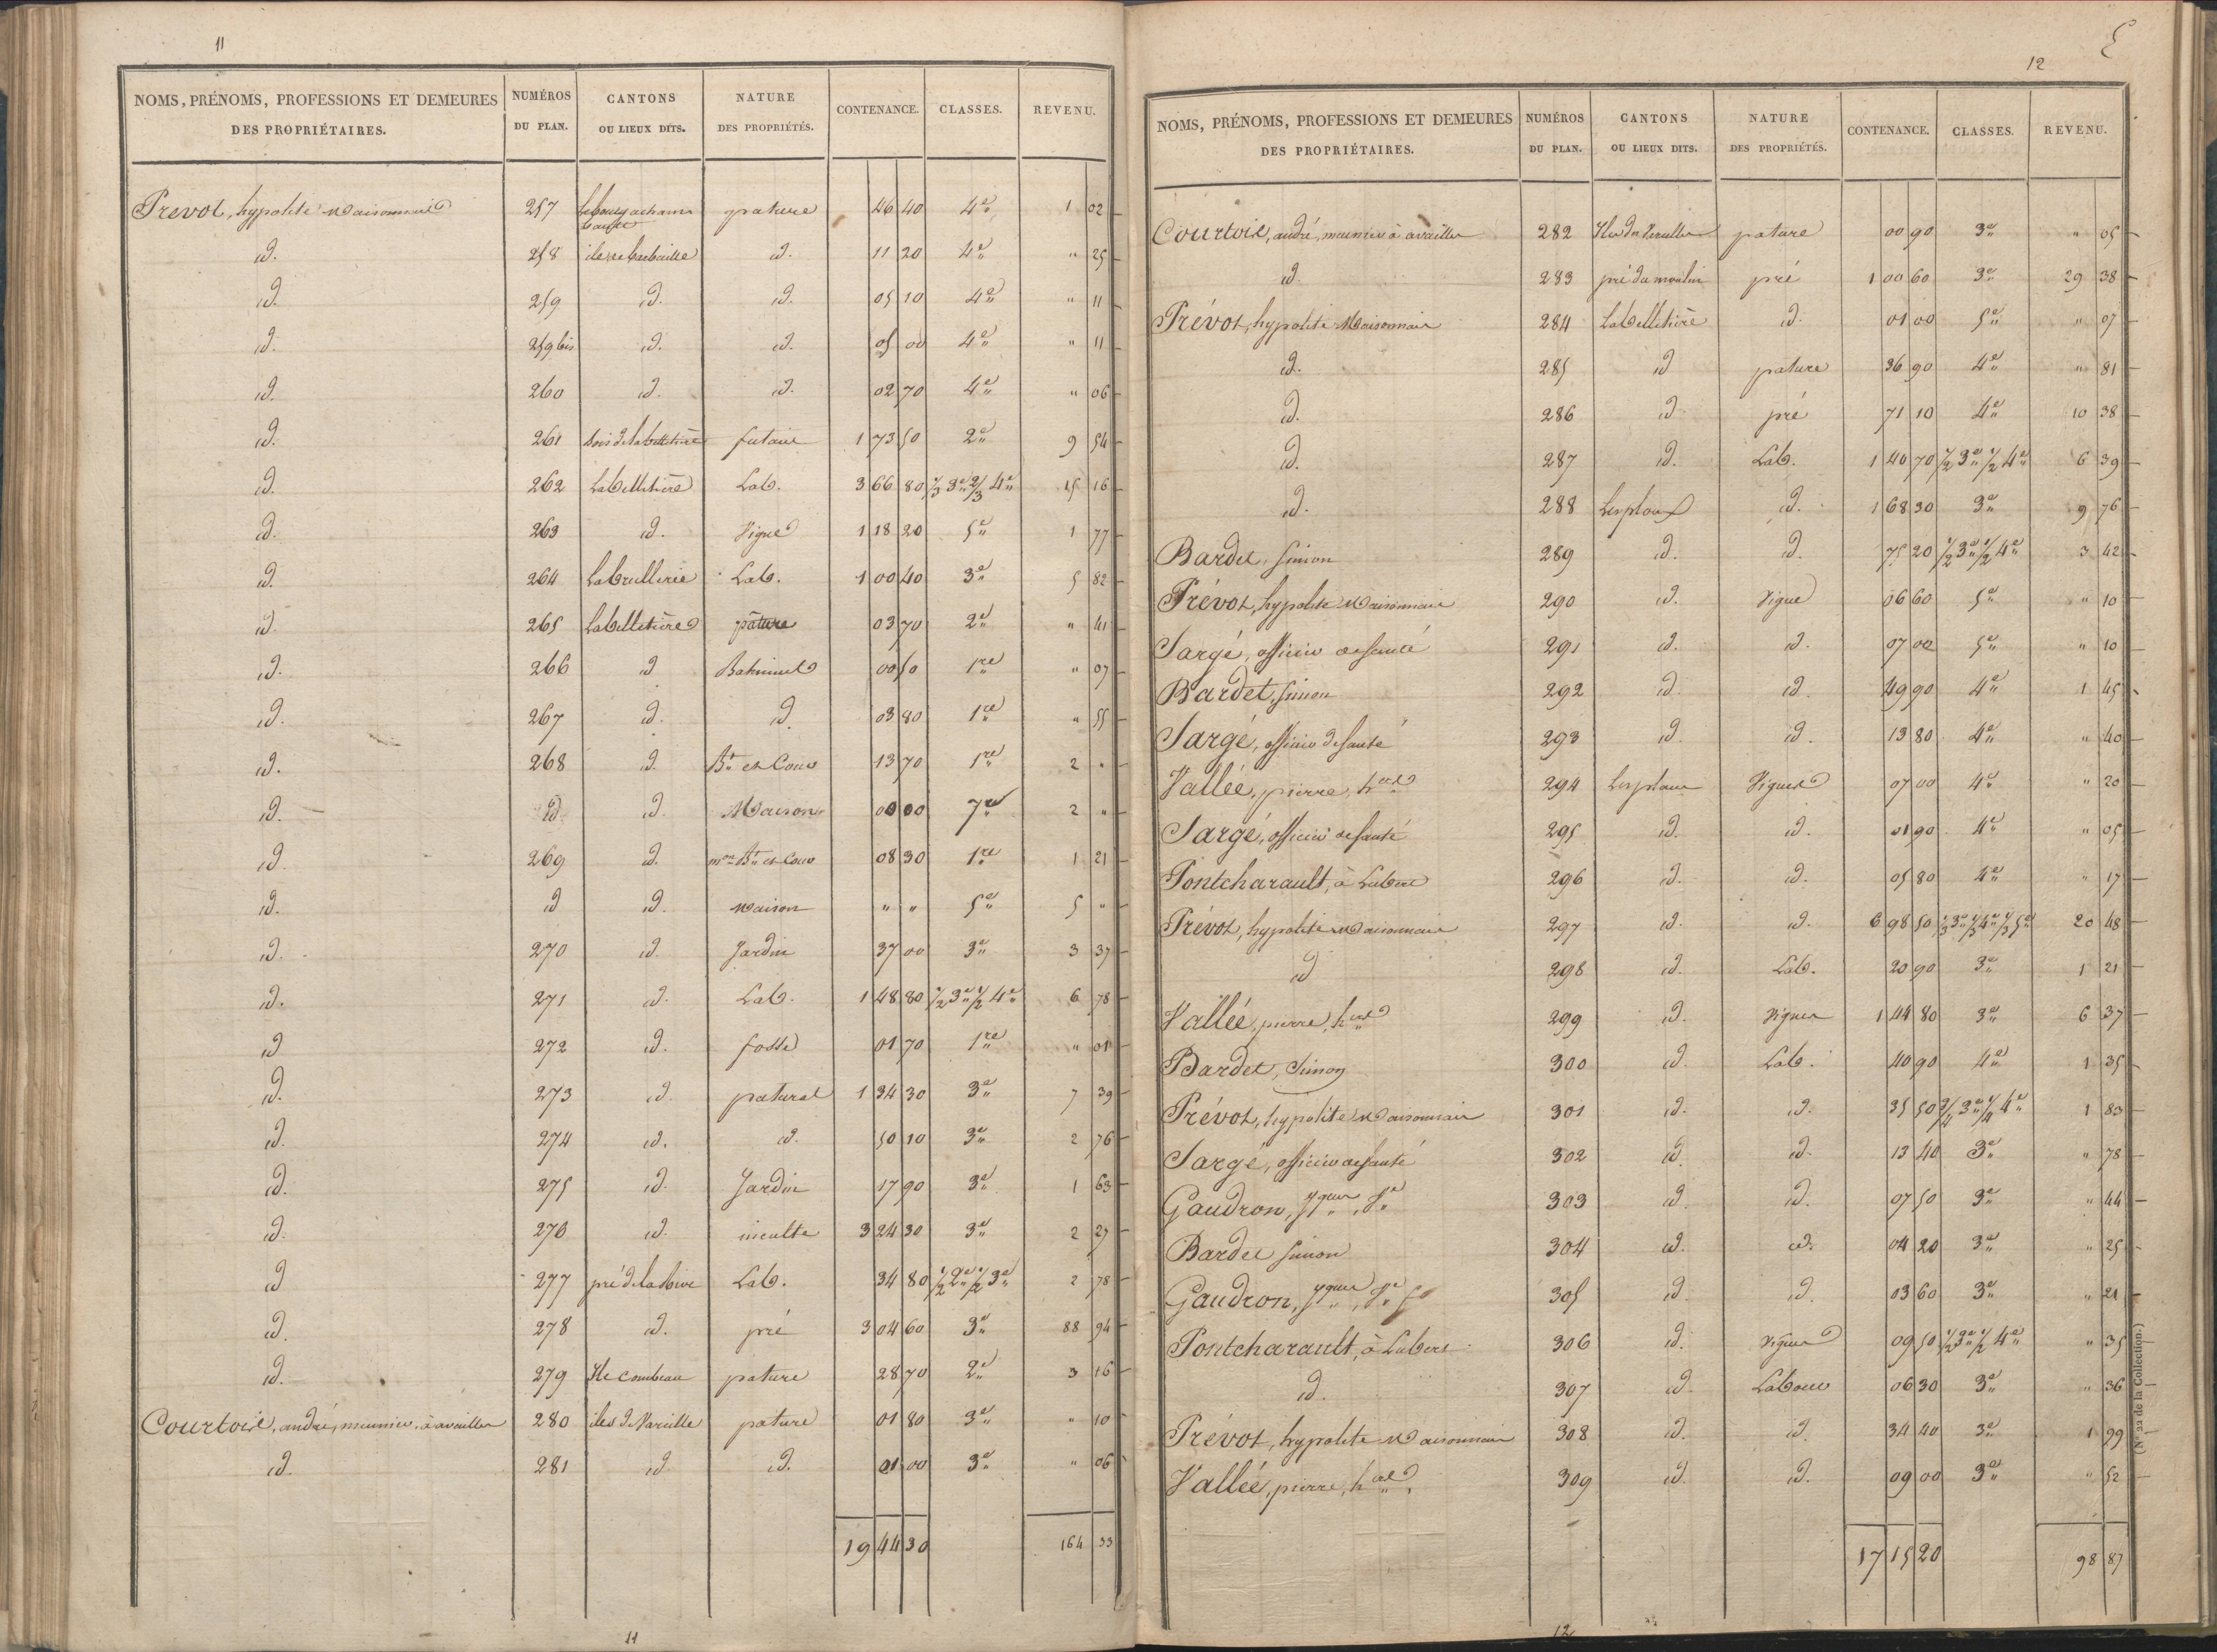 11
NOMS, PRÉNOMS, PROFESSIONS ET DEMEURES DES PROPRIÉTAIRES. NUMÉROS DU PLAN. CANTONS OU LIEUX DITS. NATURE DES PROPRIÉTÉS. CONTENANCE. CLASSES. REVENU.
Prevot, hypolite 257 pature 46 40 4e 1 02
id. 258 id. 11 20 4e " 25
id. 259 id. id. 05 10 4e " 11
id. 259 bis id. id. 05 00 4e " 11
id. 260 id. id. 02 70 4e " 06
id. 261 bois de la belletière futaie 1 73 50 2e 9 54
id. 262 Labelletière Lab. 3 66 80 1/3 3e 2/3 4e 15 16
id. 263 id. Vigne 1 18 20 5e 1 77
id. 264 Lab. 1 00 40 3e 5 82
id. 265 Labelletière pâture 03 70 2e " 41
id. 266 id Batiment 00 50 1re " 07
id. 267 id. id. 03 80 1re " 55
id. 268 id. Bt et Cour 13 70 1re 2 "
id. id. id. Maison 00 00 7e 2 "
id. 269 id. mon Bt et Cour 08 30 1re 1 21
id. id id. maison " " 5e 5 "
id. 270 id. Jardin 37 00 3e 3 37
id. 271 id. Lab. 1 48 80 1/2 3e 1/2 4e 6 78
id 272 id. fosse 01 70 1re " 01
id. 273 id patural 1 34 30 3e 7 39
id. 274 id. id. 50 10 3e 2 76
id. 275 id. Jardin 17 90 3e 1 63
id. 276 id. inculte 3 24 30 3e 2 27
id 277 pré de la Rive Lab. 34 80 1/2 2e 1/2 3e 2 78
id. 278 id. pré 3 04 60 3e 88 94
id. 279 Ile combeau pature 28 70 2e 3 16
Courtois, andré, meunier, à availles 280 iles de pature 01 80 3e " 10
id. 281 id. id. 01 00 3e " 06
19 44 30 164 33
11
12
NOMS, PRÉNOMS, PROFESSIONS ET DEMEURES DES PROPRIÉTAIRES. NUMÉROS DU PLAN. CANTONS OU LIEUX DITS. NATURE DES PROPRIÉTÉS. CONTENANCE. CLASSES. REVENU.
Courtois, andré, meunier à availles 282 pature 00 90 3e " 05
id. 283 pré du moulin pré 1 00 60 3e 29 38
Prévot, hypolite Maisonnais 284 Labelletière id. 01 00 5e " 07
id. 285 id pature 36 90 4e " 81
id. 286 id. pré 71 10 4e 10 38
id. 287 id. Lab. 1 40 70 1/2 3e 1/2 4e 6 39
id. 288 Les ploux id. 1 68 30 3e 9 76
Bardet, Simon 289 id. id. 75 20 1/2 3e 1/2 4e 3 42
Prévot, hypolite Maisonnais 290 id. Vigne 06 60 5e " 10
Sargé, officier de santé 291 id. id. 07 00 5e " 10
Bardet, Simon 292 id. id. 49 90 4e 1 45
Sargé, officier de santé 293 id. id. 13 80 4e " 40
Vallée, pierre, 294 Les ploux Vignes 07 00 4e " 20
Sargé, officier de santé 295 id. id. 01 90 4e " 05
Pontcharault, à 296 id. id. 05 80 4e " 17
Prévot, hypolite Maisonnais 297 id. id. 6 98 50 1/3 3e 1/3 4e 1/3 5e 20 48
id 298 id. Lab. 20 90 3e 1 21
Vallée, pierre, 299 id. Vignes 1 44 80 3e 6 37
Bardet, Simon 300 id. Lab. 40 90 4e 1 35
Prévot, hypolite Maisonnais 301 id. id. 35 50 3/4 3e 1/4 4e 1 83
Sargé, officier de santé 302 id. id. 13 40 3e " 78
Gaudron, 303 id. id. 07 50 3e " 44
Bardet Simon 304 id. id. 04 20 3e " 25
Gaudron, 305 id. id. 03 60 3e " 21
Pontcharault, à 306 id. Vignes 09 50 1/2 3e 1/2 4e " 35
id. 307 id. Labour 06 30 3e " 36
Prévot, hypolite Maisonnais 308 id. id. 34 40 3e 1 99
Vallée, pierre, 309 id. id. 09 00 3e " 52
17 15 20 98 87
12
(N° 22 de la Collection.)